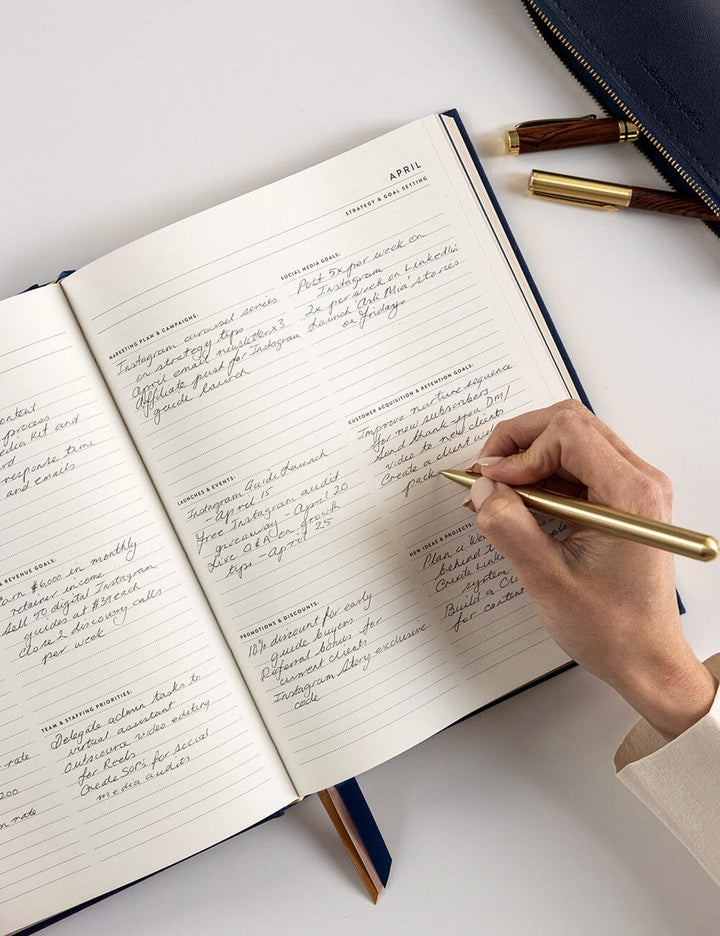 ontent
process
edia kit and
rd
response time
and emails
& REVENUE GOALS:
earn $6,000 in monthly
retainer income
Sell 50 digital Instagram
guides at $39 each
Close 2 discovery calls
per week
TEAM & STAFFING PRIORITIES:
Delegate admin tasks to
virtual assistant
Outsource video editing
for Reels
Create SOPs for social
media audits
rate
200
rate
APRIL
STRATEGY & GOAL SETTING
MARKETING PLAN & CAMPAIGNS:
Instagram carousel series
on strategy tips
April email newsletter x3
Affiliate push for Instagram
guide launch
LAUNCHES & EVENTS:
Instagram Guide Launch
- April 15
Free Instagram audit
giveaway - April 20
Live Q&A on growth
tips - April 25
PROMOTIONS & DISCOUNTS:
10% discount for early
guide buyers
Referral bonus for
current clients
Instagram story exclusive
code
SOCIAL MEDIA GOALS:
Post 5x per week on
Instagram
2x per week on LinkedIn
Launch 'Ask Mia' stories
on fridays
CUSTOMER ACQUISITION & RETENTION GOALS:
Improve nurture sequence
for new subscribers
Send thank you DM/
video to new clients
Create a client
pack
NEW IDEAS & PROJECTS
Plan a
behind
Create
system
Build a
for content